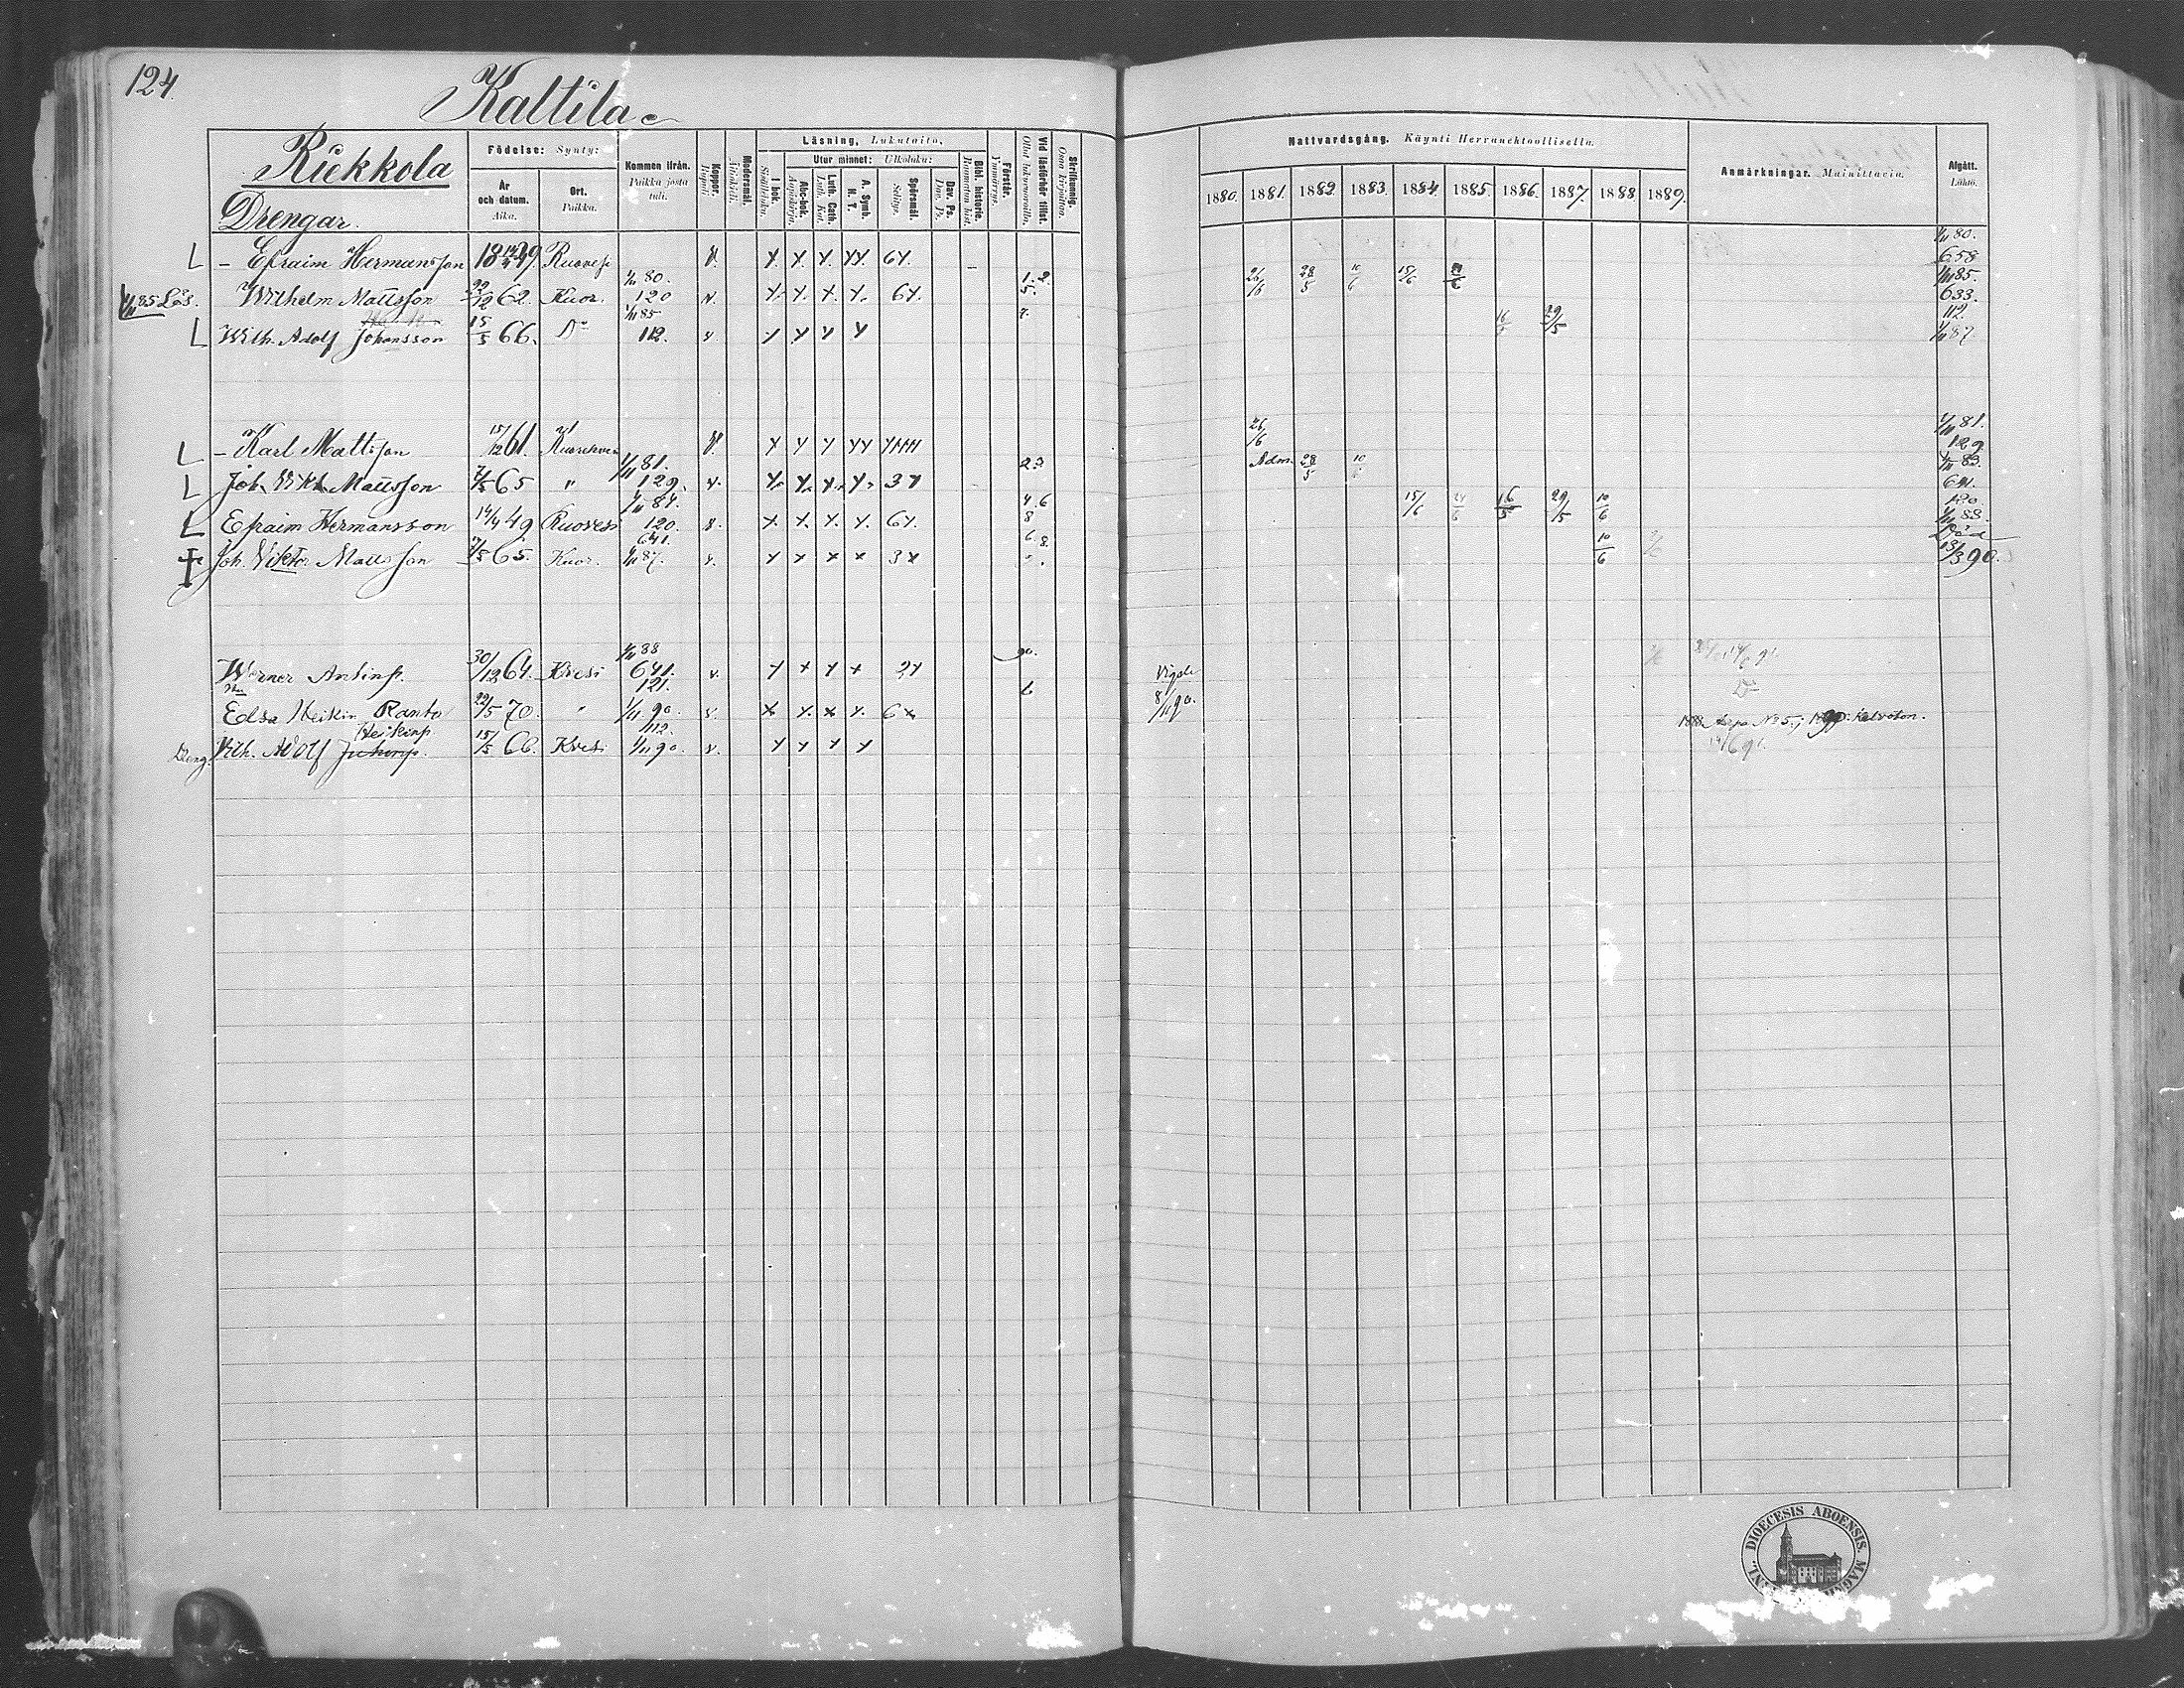 124.
Kaltila.
Riekkola
Drengar.
Födelse: Synty:
År och datum. Aika.
Ort. Paikka.
Kommen ifrån. Paikka josta tuli.
Koppor. Rupuli.
Modersmål. Äitinkieli.
Läsning, Lukutaito,
I bok. Sisältluku.
Utur minnet: Ulkoluku:
Abc-bok. Aapiskirja.
Luth. Cath. Luth. Kat.
A. Symb. H. T.
Spörsmål.
Dav. Ps. Dav. Ps.
Bibl. historie. Raamatun hist.
Förstår. Ymmärrys.
Vid läsförhör tillst. Ollut lukuvuorolla.
Skrifkunnig. Osaa kirjoittaa.
Nattvardsgång. Käynti Herranehtoollisella.
1880. 1881. 1882. 1883. 1884. 1885. 1886. 1887. 1888 1889.
Anmärkningar. Muistutuksia.
Afgått. Lähtö.
L – Efraim Hermansson 18 14/4 49. Ruovesi V. Y. Y. Y. YY. 6Y. 1/11 80. 658
1/11 85 Lös. Wilhelm Mattsson 22/12 62. Kuor. 1/11 80. 120 v. Y. Y. Y. Y. 6Y. 1. 2. 5. 26/6 28/5 10/6 15/6 1/11 85. 633.
L Wilh. Adolf Johansson 15/5 66. Do 1/11 85 112. v Y Y Y Y 7. 16/5 29/5 112. 1/11 87.
L – Karl Mattsson 15/12 61. V. Y Y Y YY 26/6 1/11 81. 129
L Joh. Vikt. Mattsson 7/5 65 " 1/11 81. 129. v. Y. Y. Y. Y. 3Y 2 3 Adm. 28/5 10/6 1/11 83. 641.
L Efraim Hermansson 14/4 49 Ruovesi 1/11 84. 120. v. Y. Y. Y. Y. 6Y. 4. 6 8 15/6 16/5 29/5 10/6 120 1/11 88.
† Joh. Viktor Mattsson 7/5 65. Kuor. 641. 1/11 87. v. Y Y x x 3x 6. 8. 10/6 Död 13/3 90.
Werner Antinp. 30/12 64. Kvesi 1/11 88 641. v. Y x Y x 2Y 90. Vigde 8/11 90.
Hu Edla Heikin Ranta 22/5 70. " 121. 1/11 90. v. x Y. x Y. 6x 6 Do
Dreng. Vilh. Adolf Juhonp. Heikinp. 15/5 66. Kvesi 112. 1/11 90. v. Y Y Y Y 1888 Arpa No 5; 1890. Kelvoton. 14/6 91.
DIOECESIS ABOENSIS. MAGN